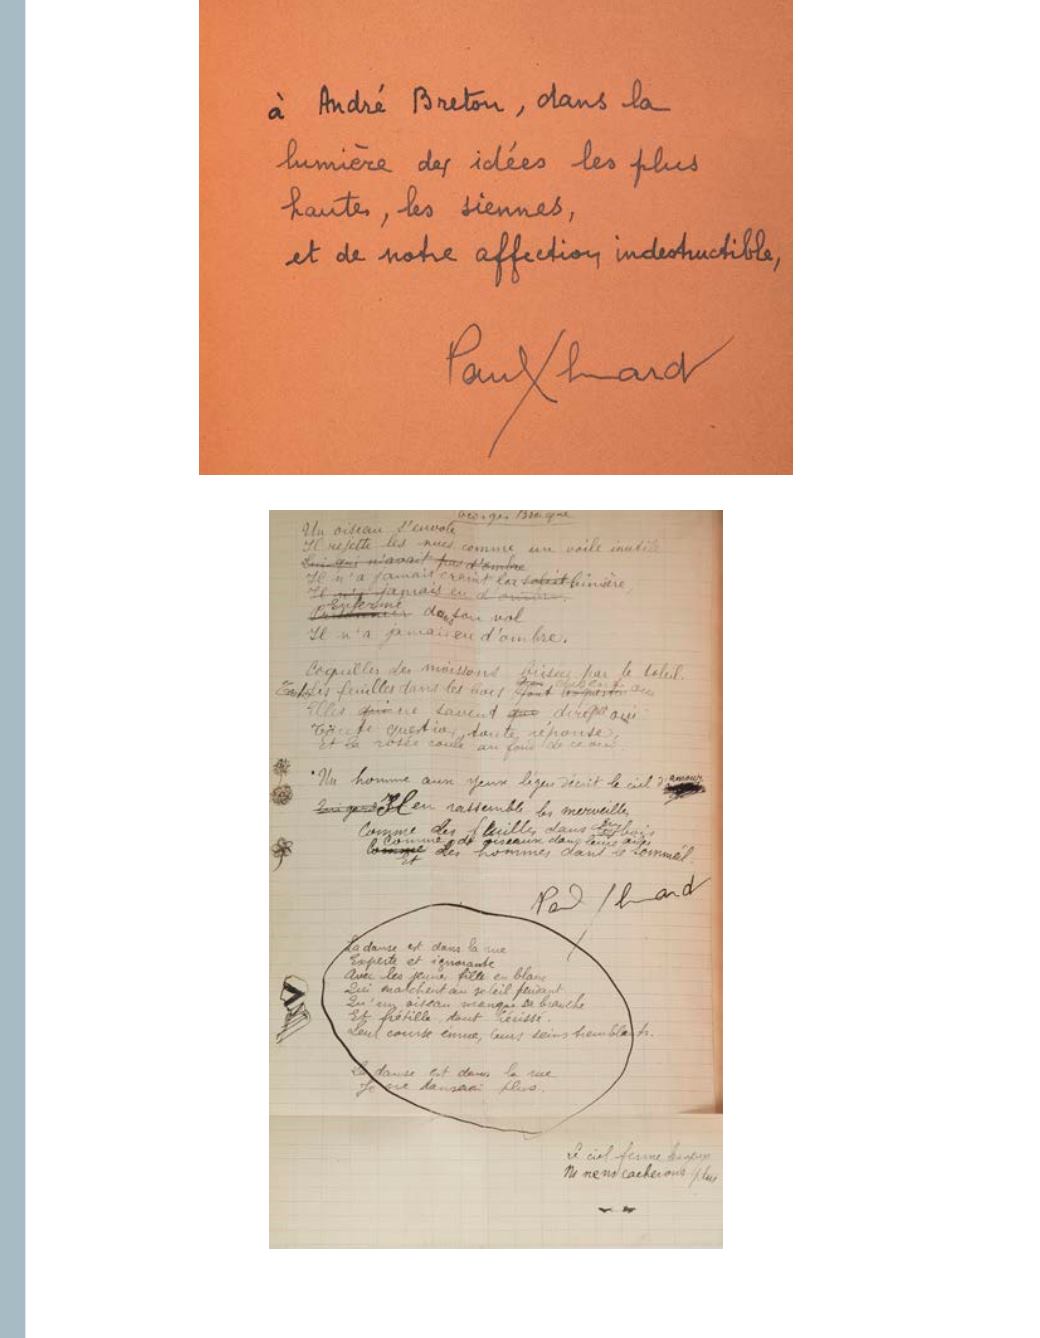 à André Breton, dans la
lumière des idées les plus
hautes, les siennes,
et de notre affection indestructible,
Paul Eluard
Georges Braque
Un oiseau s'envole
Il rejette les nues comme un voile inutile
Lui qui n'avait pas d'ombre
Il n'a jamais craint la soleil lumière,
Il n'a jamais eu d'ombre.
Enfermé dans son vol
Il n'a jamais eu d'ombre.
Coquilles des moissons brisées par le soleil.
les feuilles dans les bois
Elles ne savent que dire oui
Toute question, toute réponse,
Et la rosée coule au fond de ce oui.
Un homme aux yeux légers décrit le ciel d'amour
Il en rassemble les merveilles
Comme des feuilles dans les bois
Comme des oiseaux dans leurs ailes
Et des hommes dans le sommeil.
Paul Eluard
La danse est dans la rue
Experte et ignorante
Avec les jeunes filles en blanc
Qui marchent au soleil pendant
Qu'un oiseau manque sa branche
Et frétille, tout hérissé.
Leur course émue, leurs seins tremblants.
La danse est dans la rue
Je ne danserai plus.
Le ciel ferme
Ne nous cacherons plus